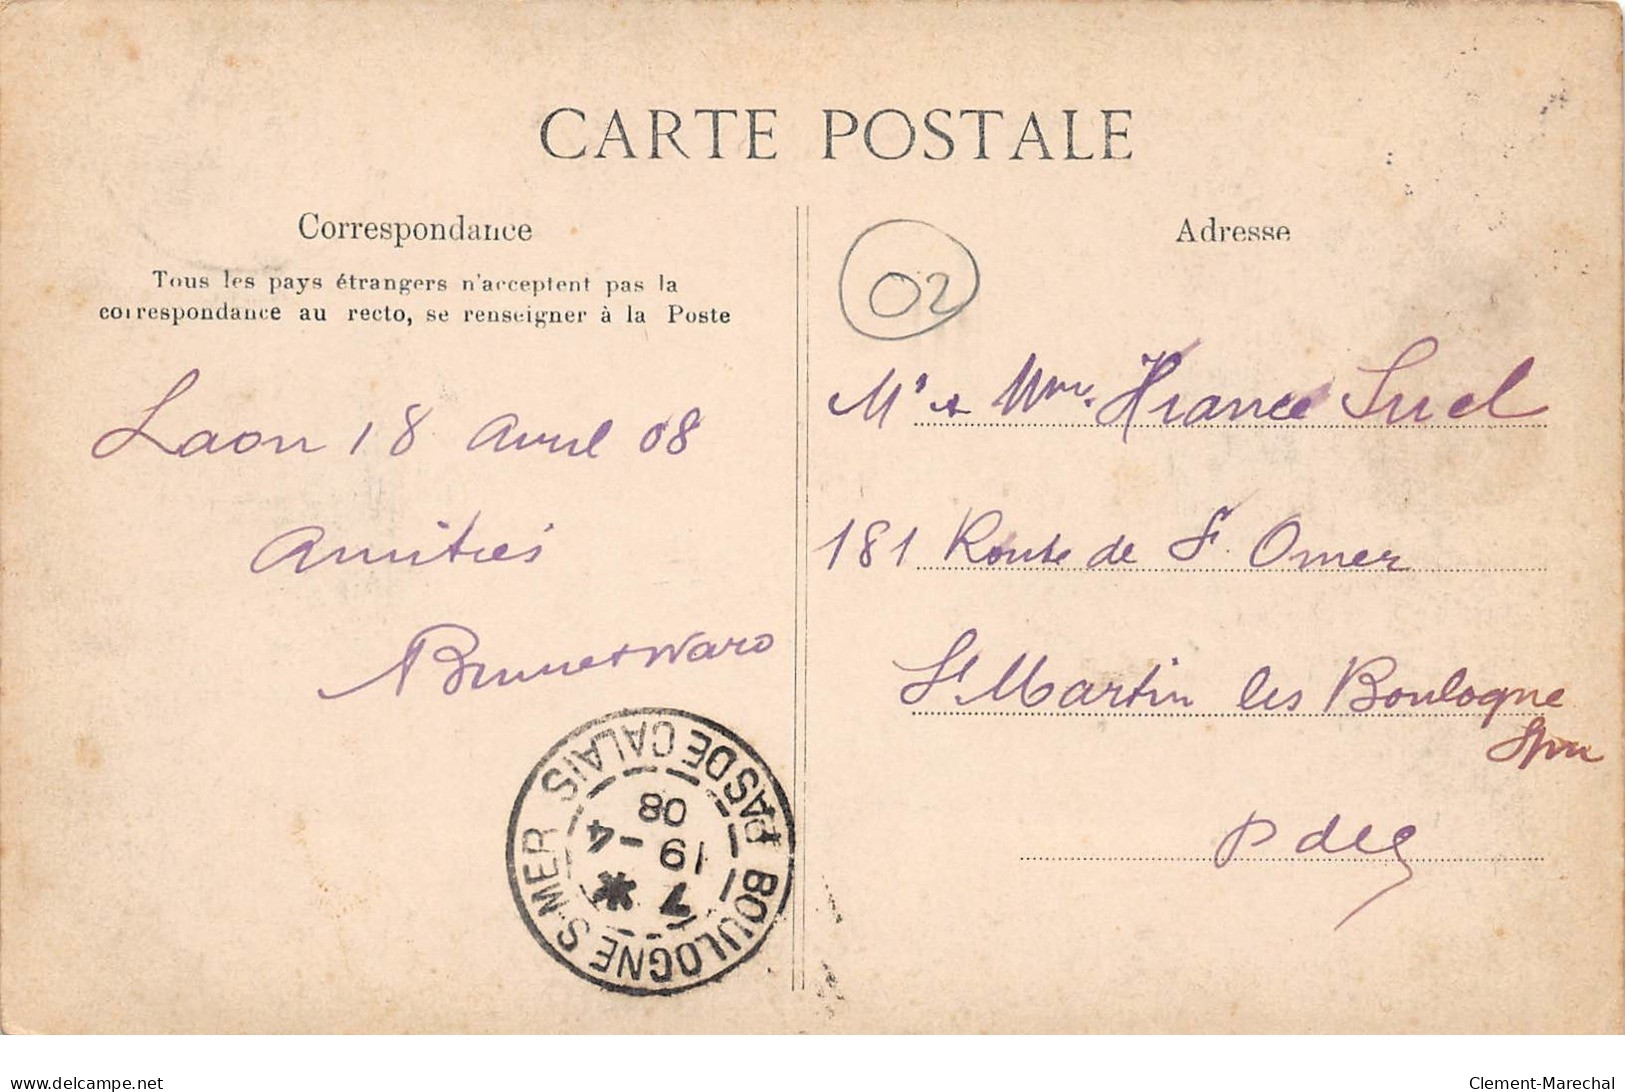 CARTE POSTALE
Correspondance
Tous les pays étrangers n'acceptent pas la
correspondance au recto, se renseigner à la Poste
Laon 18 Avril 08
Amitiés
Adresse
02
Mr & Mme. France Suel
181 Route de St. Omer
St Martin les Boulogne
S/Mer
P de C
BOULOGNE S MER PAS DE CALAIS
7 *
19 -4
08
delcampe.net
Clement-Marechal